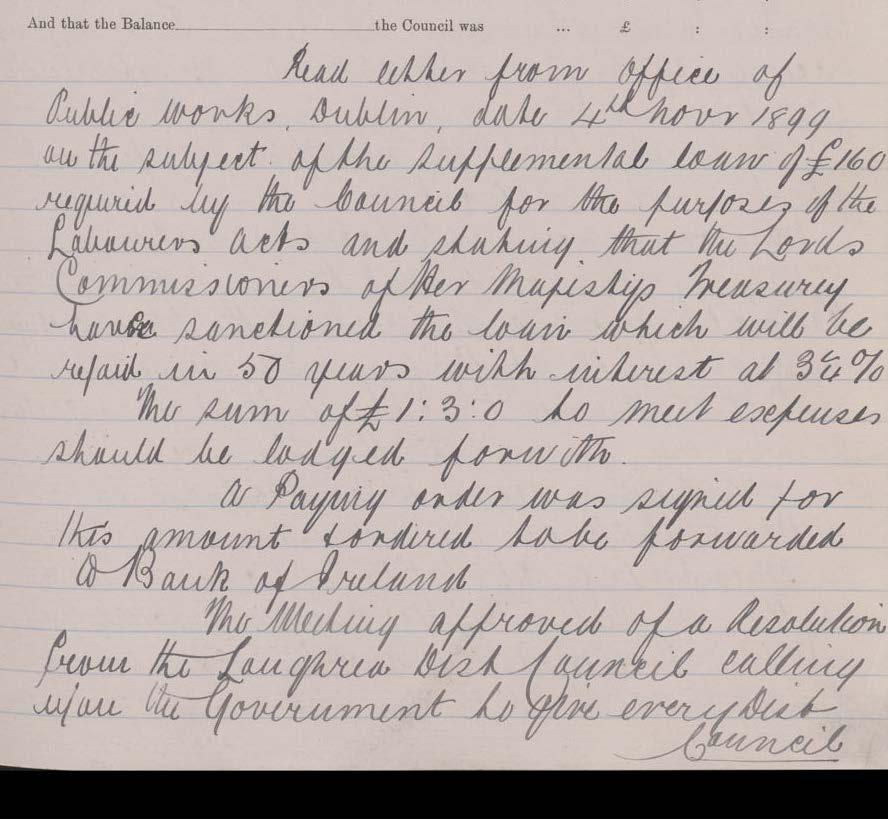 And that the Balance the Council was ... £ : :
Read letter from Office of
Public Works, Dublin, date 4th Novr 1899
on the subject of the supplemental loan of £160
required by the Council for the purposes of the
Labourers Acts and stating that the Lords
Commissioners of Her Majesty's Treasurey
have sanctioned the loan which will be
repaid in 50 years with interest at 3¼%
The sum of £1:3:0 to meet expenses
should be lodged forwith.
A Paying order was signed for
this amount & ordered to be forwarded
to Bank of Ireland
The Meeting approved of a Resolution
from the Loughrea Dist Council calling
upon the Government to give every Dist
Council